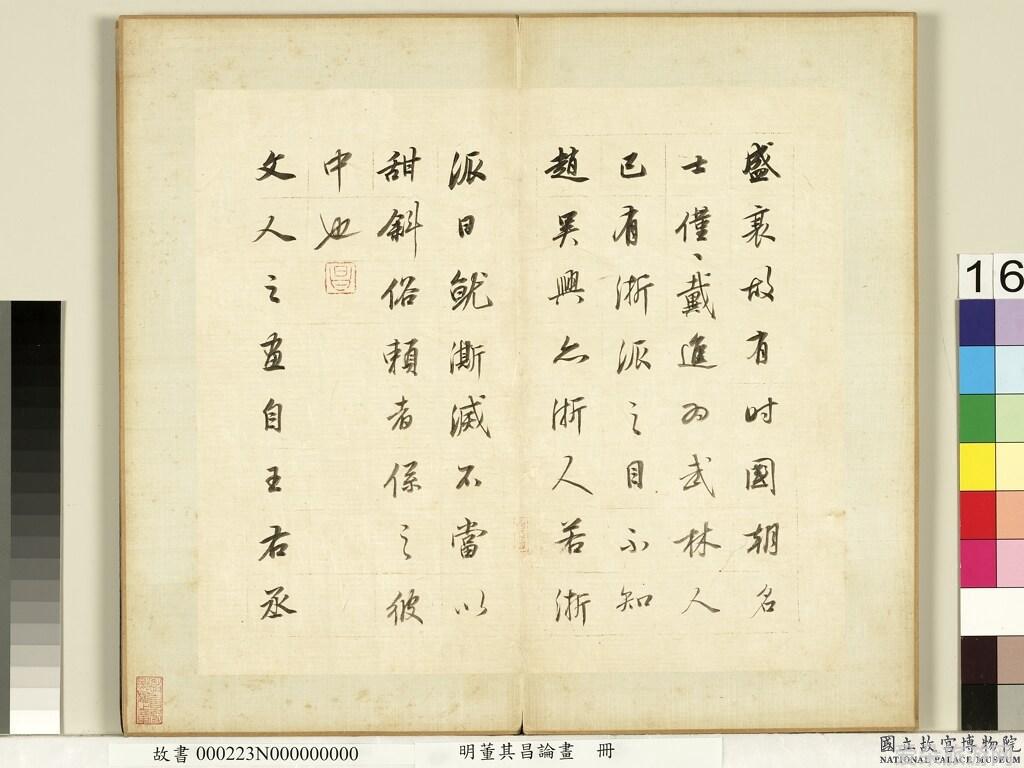 盛衰故有时國朝名
士僅、戴進为武林人
已有浙派之目不知
趙吴興亦浙人若浙
派日就澌滅不當以
甜斜俗賴者係之彼
中也
文人之畫自王右丞
16
故書 000223N000000000
明董其昌論畫 冊
國立故宮博物院
NATIONAL PALACE MUSEUM